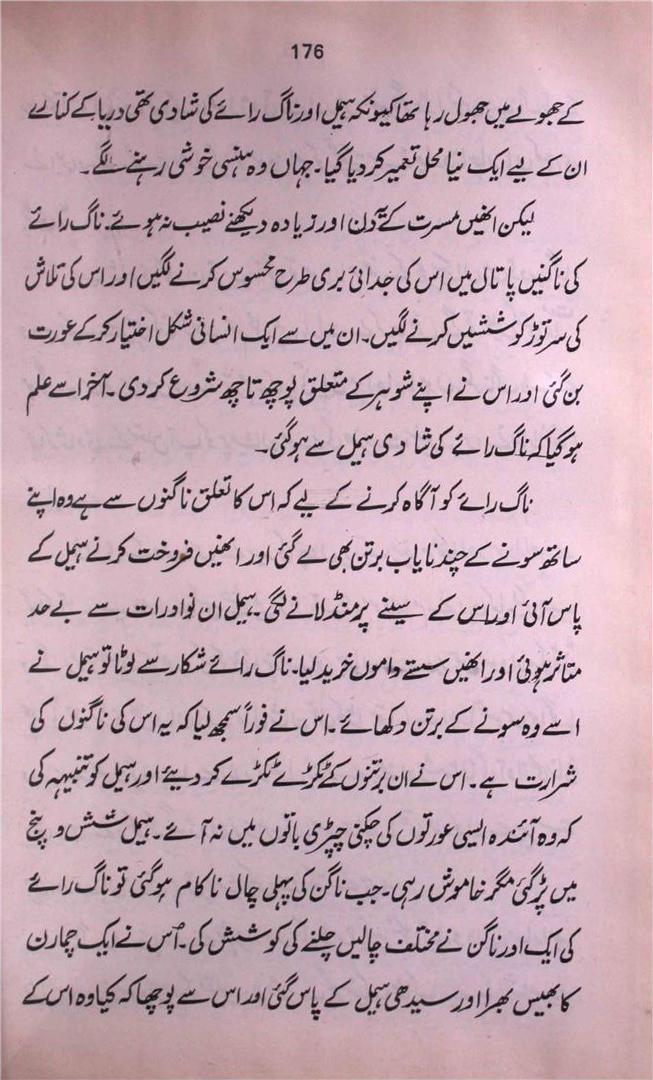 176
کے جھولے میں جھول رہا تھا کیونکہ ہیمل اور ناگ رائے کی شادی تھی دریا کے کنارے
ان کے لیے ایک نیا محل تعمیر کر دیا گیا۔ جہاں وہ ہنسی خوشی رہنے لگے۔
لیکن انھیں مسرت کے یہ دن اور زیادہ دیکھنے نصیب نہ ہوئے۔ ناگ رائے
کی ناگنیں پاتال میں اس کی جدائی بری طرح محسوس کرنے لگیں اور اس کی تلاش
کی سر توڑ کوششیں کرنے لگیں۔ ان میں سے ایک انسانی شکل اختیار کر کے عورت
بن گئی اور اس نے اپنے شوہر کے متعلق پوچھ تاچھ شروع کر دی۔ آخر اسے علم
ہو گیا کہ ناگ رائے کی شادی ہیمل سے ہو گئی۔
ناگ رائے کو آگاہ کرنے کے لیے کہ اس کا تعلق ناگنوں سے ہے وہ اپنے
ساتھ سونے کے چند نایاب برتن بھی لے گئی اور انھیں فروخت کرنے ہیمل کے
پاس آئی اور اس کے سینے پر منڈلانے لگی۔ ہیمل ان نوادرات سے بے حد
متاثر ہوئی اور انھیں سستے داموں خرید لیا۔ ناگ رائے شکار سے لوٹا تو ہیمل نے
اسے وہ سونے کے برتن دکھائے۔ اس نے فوراً سمجھ لیا کہ یہ اس کی ناگنوں کی
شرارت ہے۔ اس نے ان برتنوں کے ٹکڑے ٹکڑے کر دیئے اور ہیمل کو تنبیہہ کی
کہ وہ آئندہ ایسی عورتوں کی چکنی چپڑی باتوں میں نہ آئے۔ ہیمل شش و پنج
میں پڑ گئی مگر خاموش رہی۔ جب ناگن کی پہلی چال ناکام ہو گئی تو ناگ رائے
کی ایک اور ناگن نے مختلف چالیں چلنے کی کوشش کی۔ اس نے ایک چمارن
کا بھیس بھرا اور سیدھی ہیمل کے پاس گئی اور اس سے پوچھا کہ کیا وہ اس کے